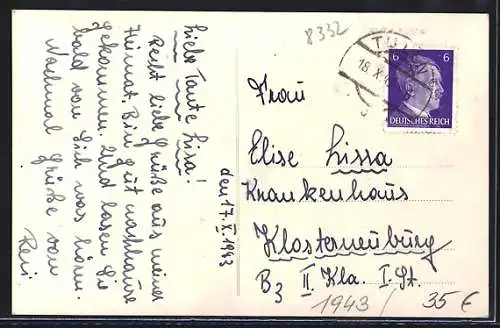 8332
TULLN
18.X.
6 6
DEUTSCHES REICH
den 17.X.1943
Liebe Tante Lisa!
Recht liebe Grüße aus meiner
Heimat. Bin gut nachhause
gekommen. Und lasen Sie
bald von Sich was hörn.
Nochmal Grüße von
Resi.
Frau
Elise Lissa
Krankenhaus
Klosterneuburg
B3 II. Kla. I. St.
1943/ 35 €